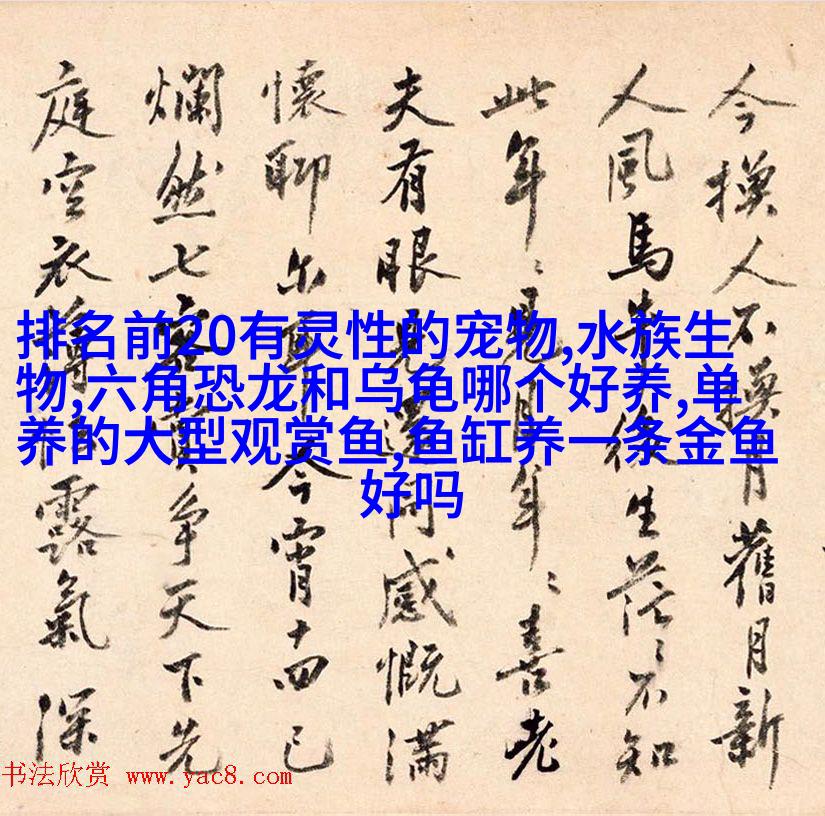 排名前20有灵性的宠物,水族生
物,六角恐龙和乌龟哪个好养,单
养的大型观赏鱼,鱼缸养一条金鱼
好吗
今換人不換月舊月新
人風馬牛後生茫〻不知
此年〻見月年〻喜老
夫有眼見問感慨滿
懷聊尔耳今宵十四已
爛然七客賞爭天下先
庭空衣露氣深
书法欣赏 www.yac8.com